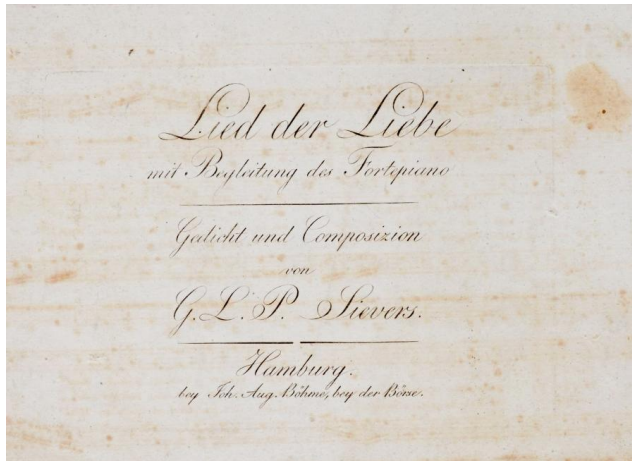 Lied der Liebe
mit Begleitung des Fortepiano
Gedicht und Composizion
von
G. L. P. Sievers.
Hamburg.
bey Joh. Aug. Böhme, bey der Börse.